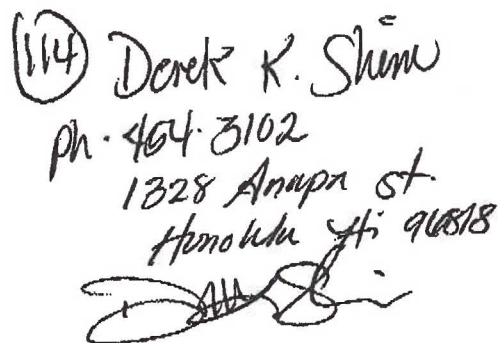 114 Derek K. Shim
ph. 454.3102
1328 Anapa st.
Honolulu Hi 96818